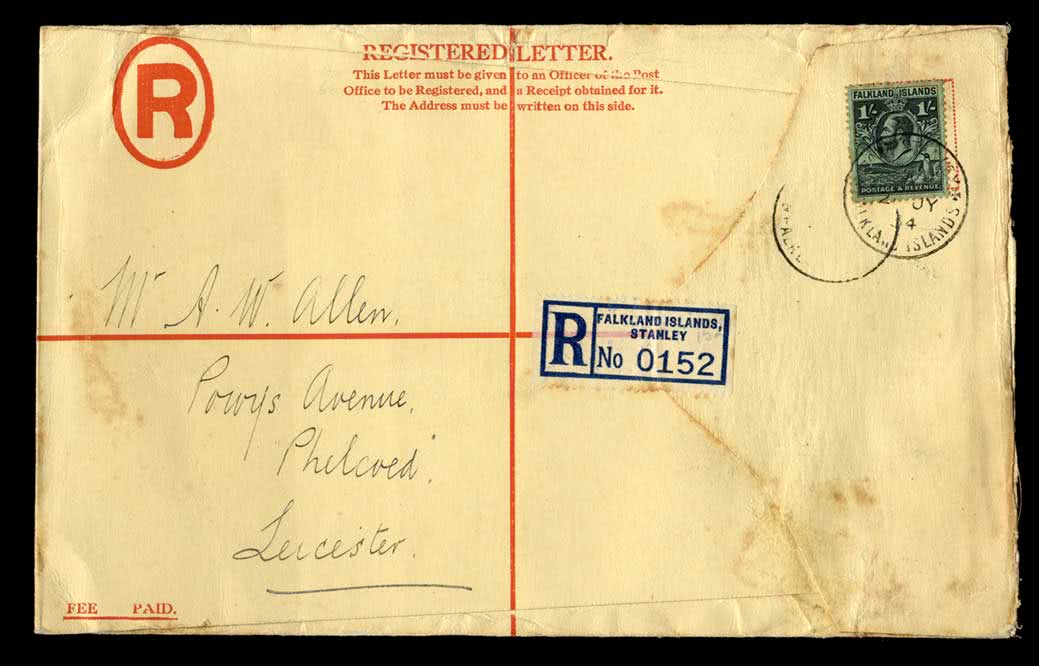 R
REGISTERED LETTER.
This Letter must be given to an Officer of the Post
Office to be Registered, and a Receipt obtained for it.
The Address must be written on this side.
FALKLAND ISLANDS
1/- 1/-
POSTAGE & REVENUE
2 JY
34
FALKLAND ISLANDS
Mr A. W. Allen,
R
FALKLAND ISLANDS,
STANLEY
No 0152
Powys Avenue,
"Phelcved",
Leicester.
FEE PAID.